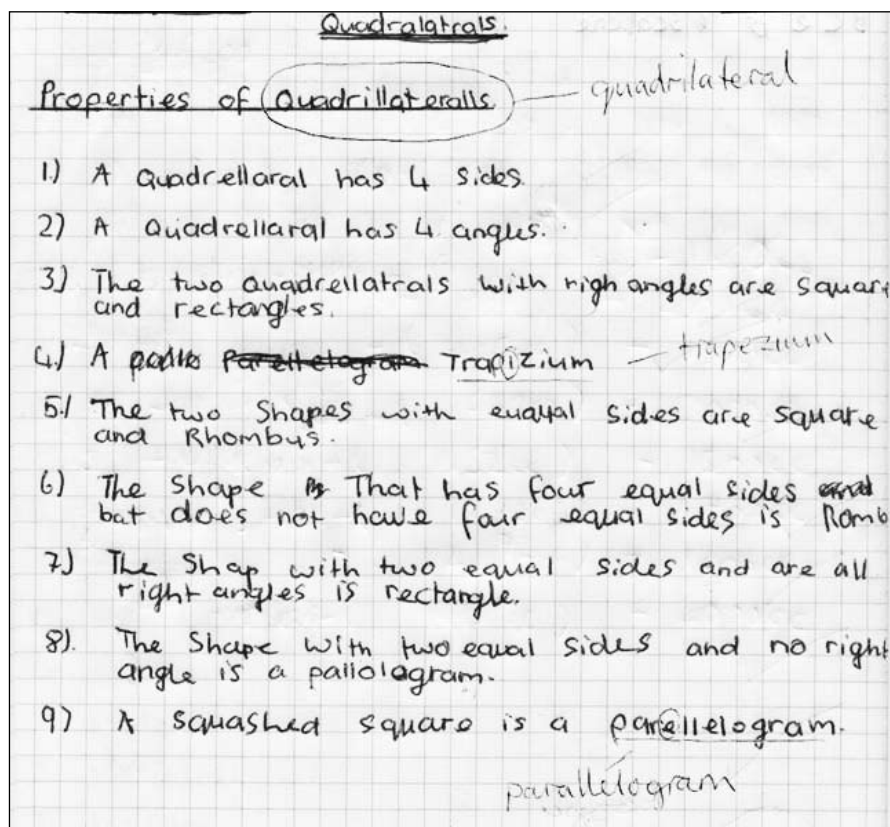 Quadralatrals.
Properties of Quadrillateralls. quadrilateral
1.) A Quadrellaral has 4 sides.
2) A Quadrellaral has 4 angles.
3.) The two Quadrellatrals with righ angles are square
and rectangles.
4.) A Parellelogram Trapizium trapezium
5.) The two Shapes with euqual sides are square
and Rhombus.
6) The Shape That has four equal sides and
but does not have four equal sides is Romb
7.) The Shap with two equal sides and are all
right angles is rectangle.
8). The Shape with two equal sides and no right
angle is a pallologram.
9) A squashed square is a parellelogram.
parallelogram